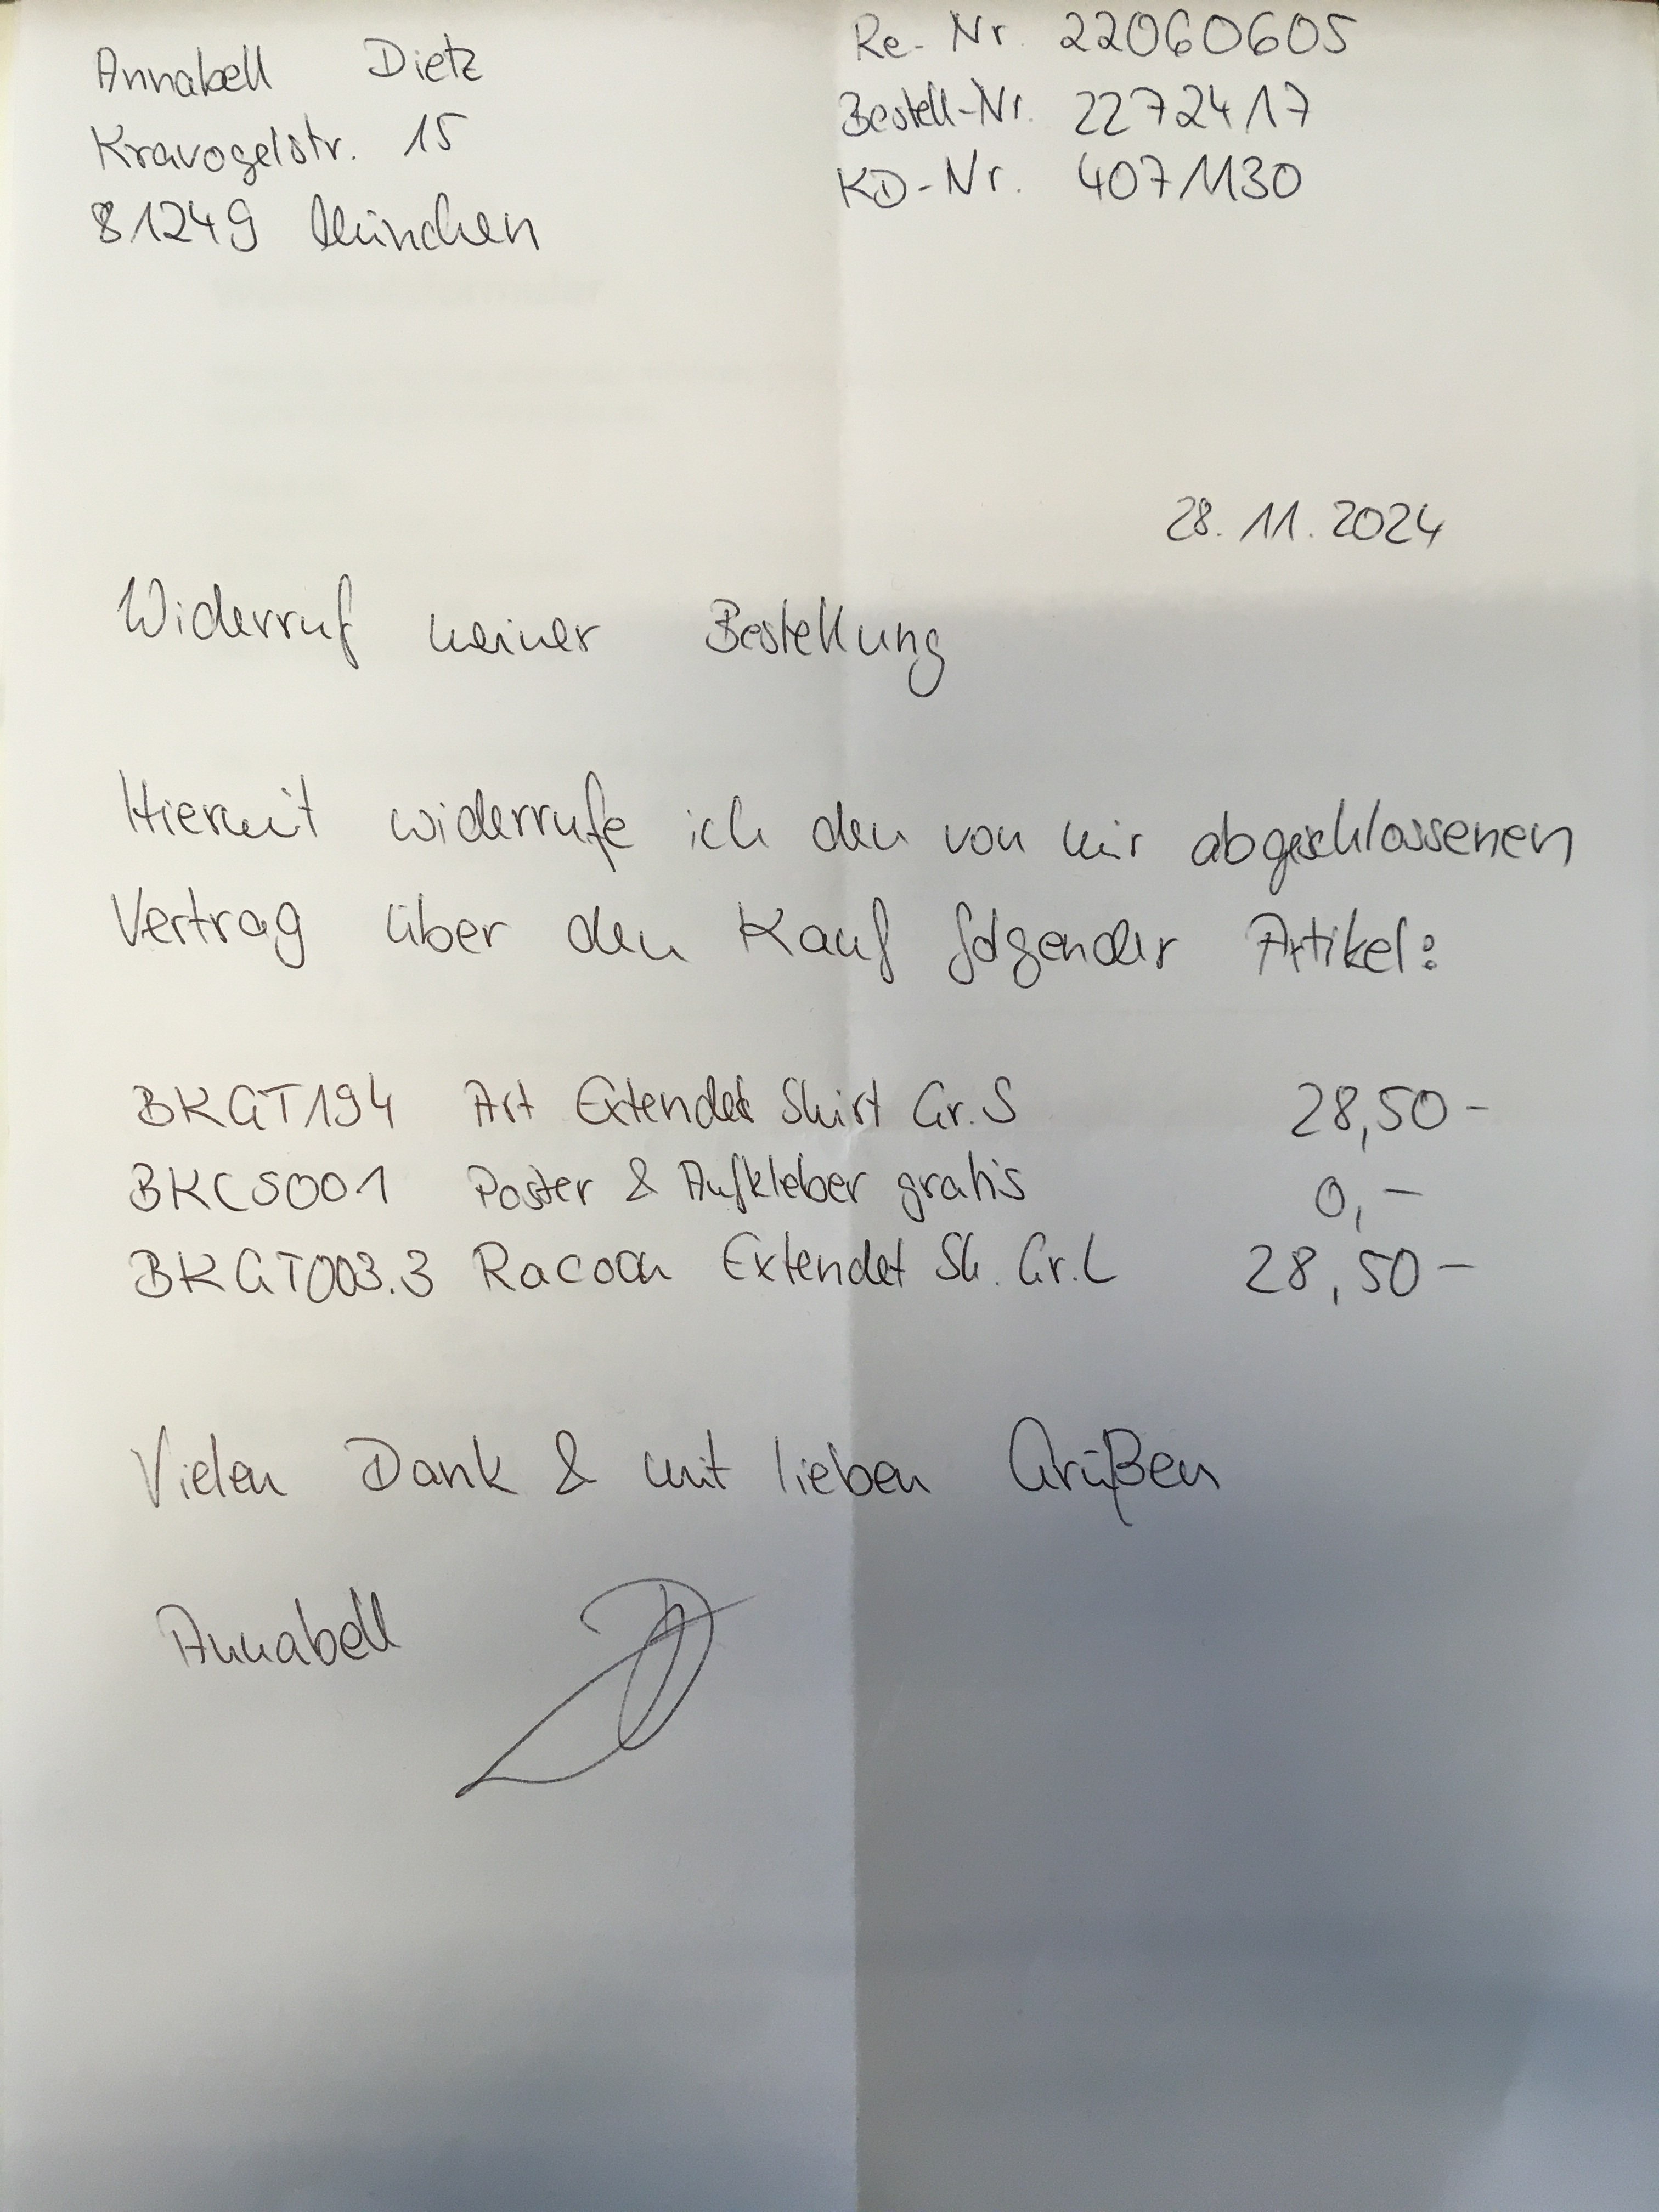 Annabell Dietz
Kravogelstr. 15
81249 München
Re-Nr. 22060605
Bestell-Nr. 2272417
KD-Nr. 4071130
28.11.2024
Widerruf meiner Bestellung
Hiermit widerrufe ich den von mir abgeschlossenen
Vertrag über den Kauf folgender Artikel:
BKGT194 Art Extendet Shirt Gr.S 28,50-
BKCS001 Poster & Aufkleber gratis 0,-
BKGT003.3 Racoon Extendet Sh. Gr.L 28,50-
Vielen Dank & mit lieben Grüßen
Annabell